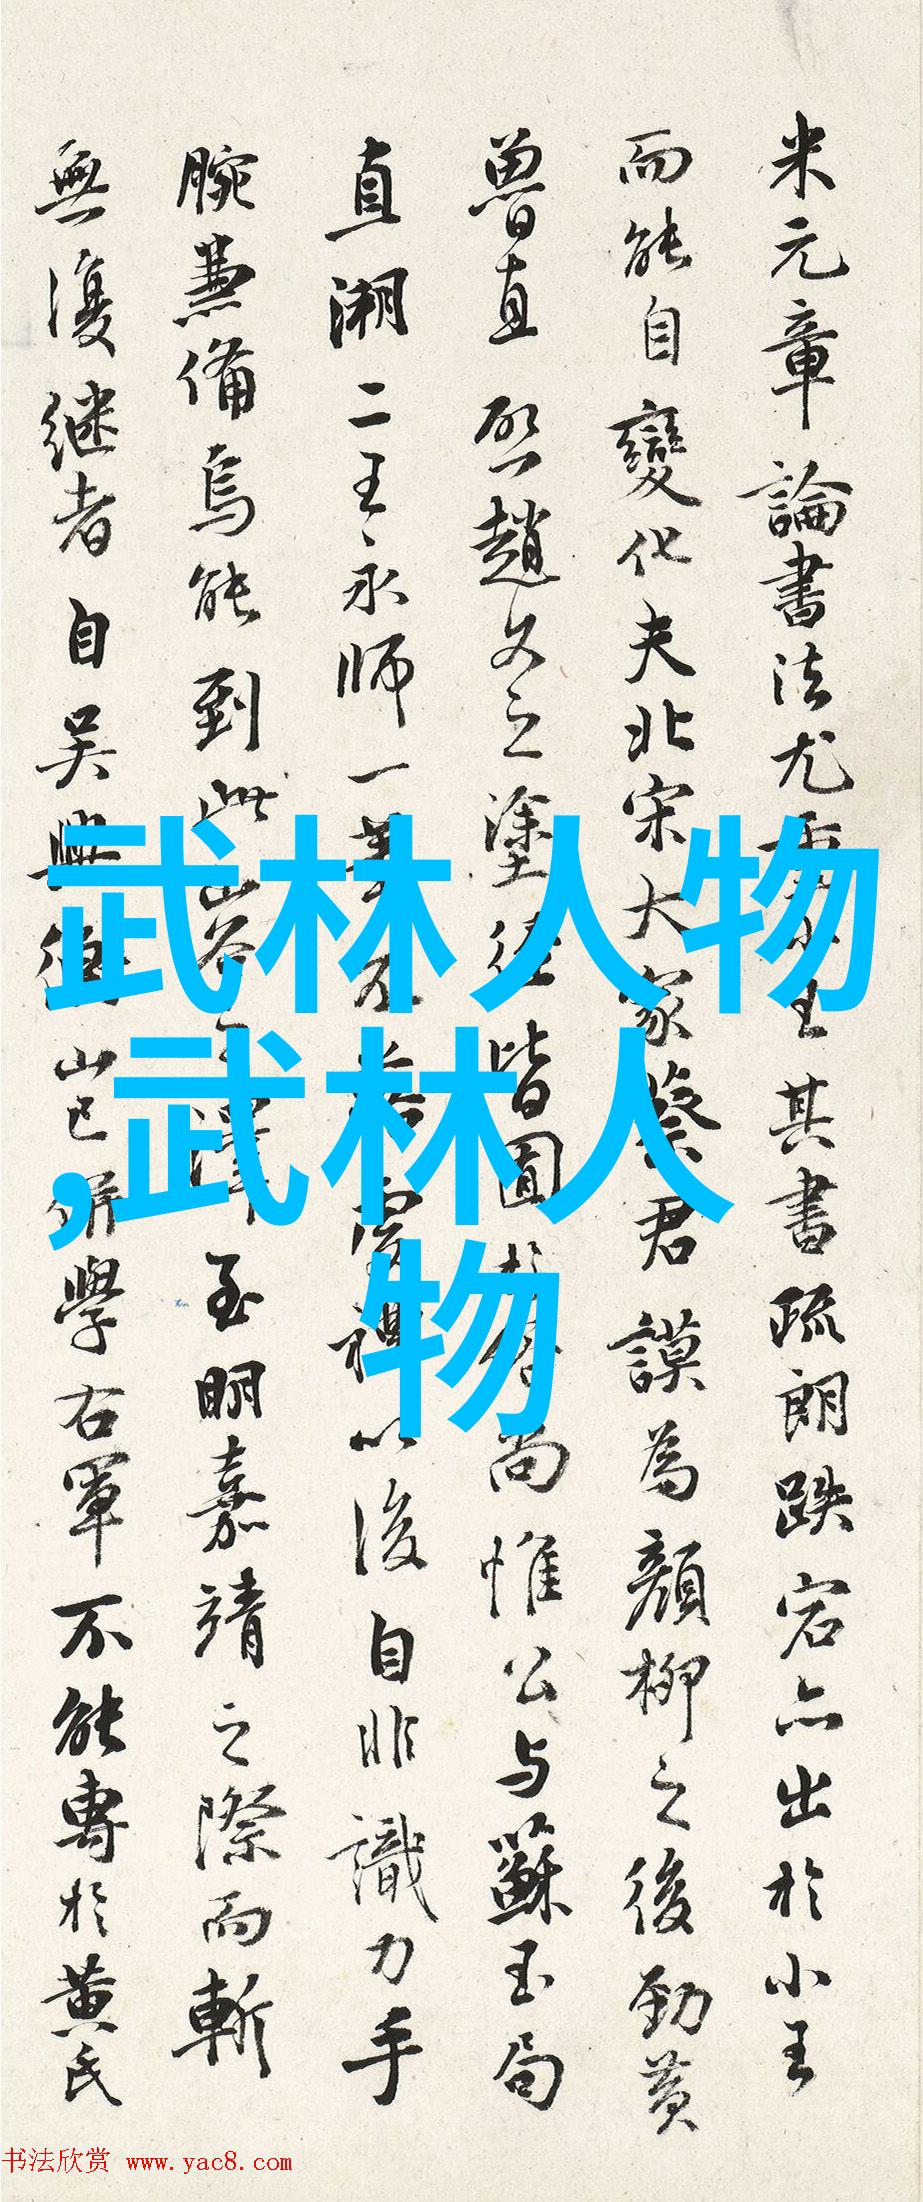 米元章論書法尤重小王其書疏朗跌宕亦出於小王
而能自變化夫北宋大家蔡君謨為顏柳之後勁黃
魯直啟趙文之塗徑皆圓 尚惟公与蘇玉局
直溯二王永師一 以後自非識力手
腕兼備烏能到此山谷之澤 至明嘉靖之際而斬
無復继者自吴興 山已 學右軍不能專於黄氏
武林人物
,武林人
物
书法欣赏 www.yac8.com